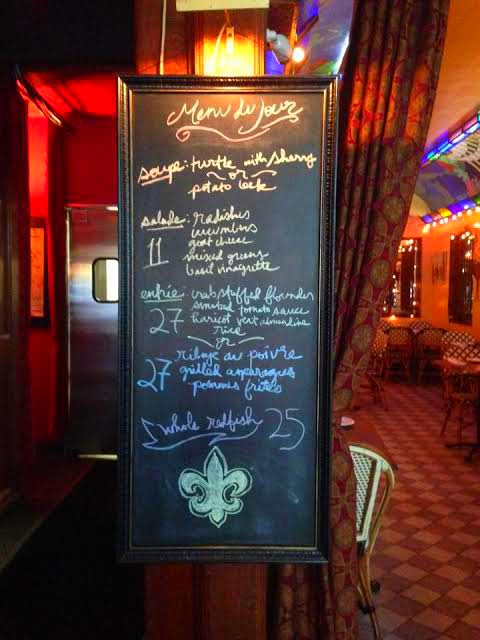 Menu du Jour
soupe: turtle with sherry
or
potato leek
salade: radishes
cucumbers
11 goat cheese
mixed greens
basil vinaigrette
entrée: crab stuffed flounder
smoked tomato sauce
27 haricot vert almondine
rice
or
ribeye au poivre
27 grilled asparagus
pommes frites
whole redfish 25